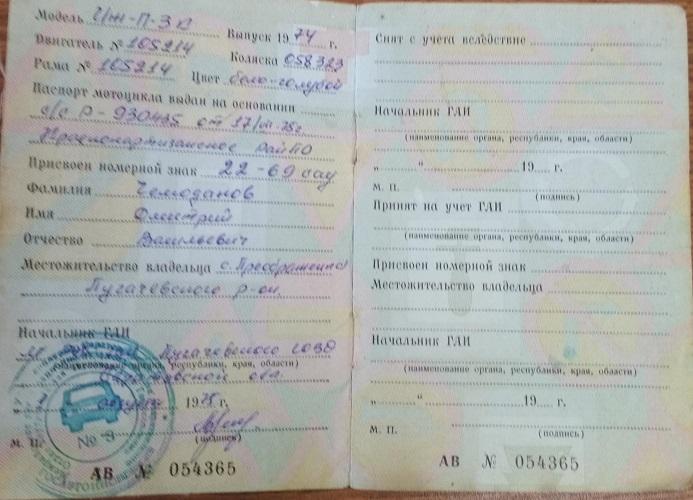 Модель Иж-П-3К Выпуск 1974 г.
Двигатель № 105214 Коляска 058323
Рама № 105214 Цвет бело-голубой
Паспорт мотоцикла выдан на основании
с/с Р-930445 от 17/
Краснопартизанское РайПО
Присвоен номерной знак 22-69 сау
Фамилия Чемоданов
Имя Дмитрий
Отчество Васильевич
Местожительство владельца с. Преображенка
Пугачевского р-он.
Начальник ГАИ
Пугачевского ГОВД
(наименование органа, республики, края, области)
обл.
августа 1975 г.
(подпись)
М. П.
№ 3
АВ № 054365
Снят с учета вследствие
Начальник ГАИ
(наименование органа, республики, края, области)
„ “ 19 г.
М. П.
(подпись)
Принят на учет ГАИ
(наименование органа, республики, края, области)
Присвоен номерной знак
Местожительство владельца
Начальник ГАИ
(наименование органа, республики, края, области)
„ “ 19 г.
М. П.
(подпись)
АВ № 054365